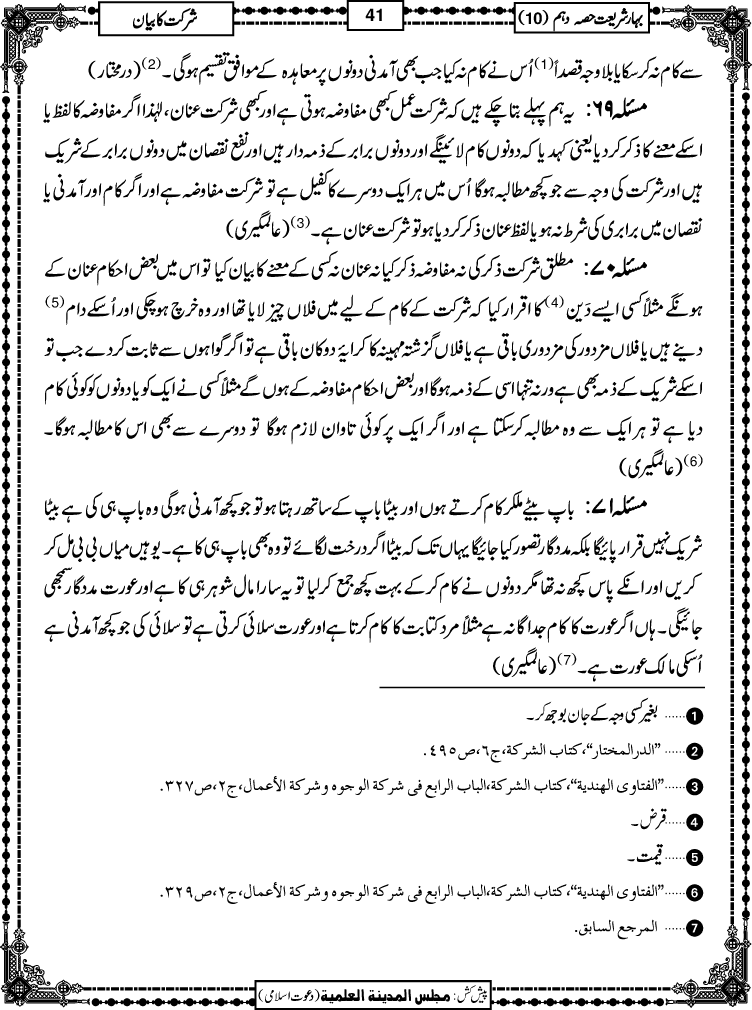 بہار شریعت حصہ دہم (10)
41
شرکت کا بیان
سے کام نہ کرسکا یا بلا وجہ قصداً(1) اُس نے کام نہ کیا جب بھی آمدنی دونوں پر معاہدہ کے موافق تقسیم ہوگی۔(2) (درمختار)
مسئلہ ۶۹: یہ ہم پہلے بتا چکے ہیں کہ شرکت عمل کبھی مفاوضہ ہوتی ہے اور کبھی شرکت عنان، لہٰذا اگر مفاوضہ کا لفظ یا
اسکے معنے کا ذکر کردیا یعنی کہدیا کہ دونوں کام لائینگے اور دونوں برابر کے ذمہ دار ہیں اور نفع نقصان میں دونوں برابر کے شریک
ہیں اور شرکت کی وجہ سے جو کچھ مطالبہ ہوگا اُس میں ہر ایک دوسرے کا کفیل ہے تو شرکت مفاوضہ ہے اور اگر کام اور آمدنی یا
نقصان میں برابری کی شرط نہ ہو یا لفظ عنان ذکر کردیا ہو تو شرکت عنان ہے۔(3) (عالمگیری)
مسئلہ ۷۰: مطلق شرکت ذکر کی نہ مفاوضہ ذکر کیا نہ عنان نہ کسی کے معنے کا بیان کیا تو اس میں بعض احکام عنان کے
ہونگے مثلاً کسی ایسے دَین(4) کا اقرار کیا کہ شرکت کے کام کے لیے میں فلاں چیز لایا تھا اور وہ خرچ ہوچکی اور اُسکے دام(5)
دینے ہیں یا فلاں مزدور کی مزدوری باقی ہے یا فلاں گزشتہ مہینہ کا کرایۂ دوکان باقی ہے تو اگر گواہوں سے ثابت کردے جب تو
اسکے شریک کے ذمہ بھی ہے ورنہ تنہا اسی کے ذمہ ہوگا اور بعض احکام مفاوضہ کے ہوں گے مثلاً کسی نے ایک کو یا دونوں کو کوئی کام
دیا ہے تو ہر ایک سے وہ مطالبہ کرسکتا ہے اور اگر ایک پر کوئی تاوان لازم ہوگا تو دوسرے سے بھی اس کا مطالبہ ہوگا۔
(6) (عالمگیری)
مسئلہ ۷۱: باپ بیٹے ملکر کام کرتے ہوں اور بیٹا باپ کے ساتھ رہتا ہو تو جو کچھ آمدنی ہوگی وہ باپ ہی کی ہے بیٹا
شریک نہیں قرار پائیگا بلکہ مددگار تصور کیا جائیگا یہاں تک کہ بیٹا اگر درخت لگائے تو وہ بھی باپ ہی کا ہے۔ یوہیں میاں بی بی مل کر
کریں اور انکے پاس کچھ نہ تھا مگر دونوں نے کام کرکے بہت کچھ جمع کرلیا تو یہ سارا مال شوہر ہی کا ہے اور عورت مددگار سمجھی
جائیگی۔ ہاں اگر عورت کا کام جداگانہ ہے مثلاً مرد کتابت کا کام کرتا ہے اور عورت سلائی کرتی ہے تو سلائی کی جو کچھ آمدنی ہے
اُسکی مالک عورت ہے۔(7) (عالمگیری)
1 ......بغیر کسی وجہ کے جان بوجھ کر۔
2 ......”الدرالمختار“، کتاب الشرکة، ج٦، ص٤٩٥.
3 ......”الفتاوی الهندیة“، کتاب الشرکة، الباب الرابع فی شرکة الوجوه وشرکة الأعمال، ج٢، ص٣٢٧.
4 ......قرض۔
5 ......قیمت۔
6 ......”الفتاوی الهندیة“، کتاب الشرکة، الباب الرابع فی شرکة الوجوه وشرکة الأعمال، ج٢، ص٣٢٩.
7 ......المرجع السابق.
پیش کش: مجلس المدینة العلمیة (دعوت اسلامی)